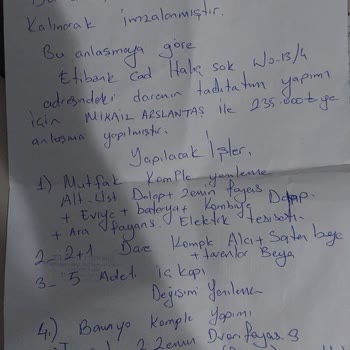 Kalınarak imzalanmıştır.
Bu anlaşmaya göre
Etibank Cad Haliç sok No-13/4
adresindeki dairenin tadilatının yapımı
için MİKAİL ARSLANTAŞ ile 235.000 tl ye
anlaşma yapılmıştır.
Yapılacak İşler.
1) Mutfak Komple yenileme
Alt-Üst Dolap + Zemin fayans
+ Eviye + batarya + Kombiye Dolap
+ Ara fayans Elektik tesisatı
2- 2+1 Daire Komple Alçı + Saten boya
+ tavanlar Boya
3- 5 Adet iç kapı
Değişim Yenileme
4) Banyo Komple yapımı
Zemin Duvar fayas